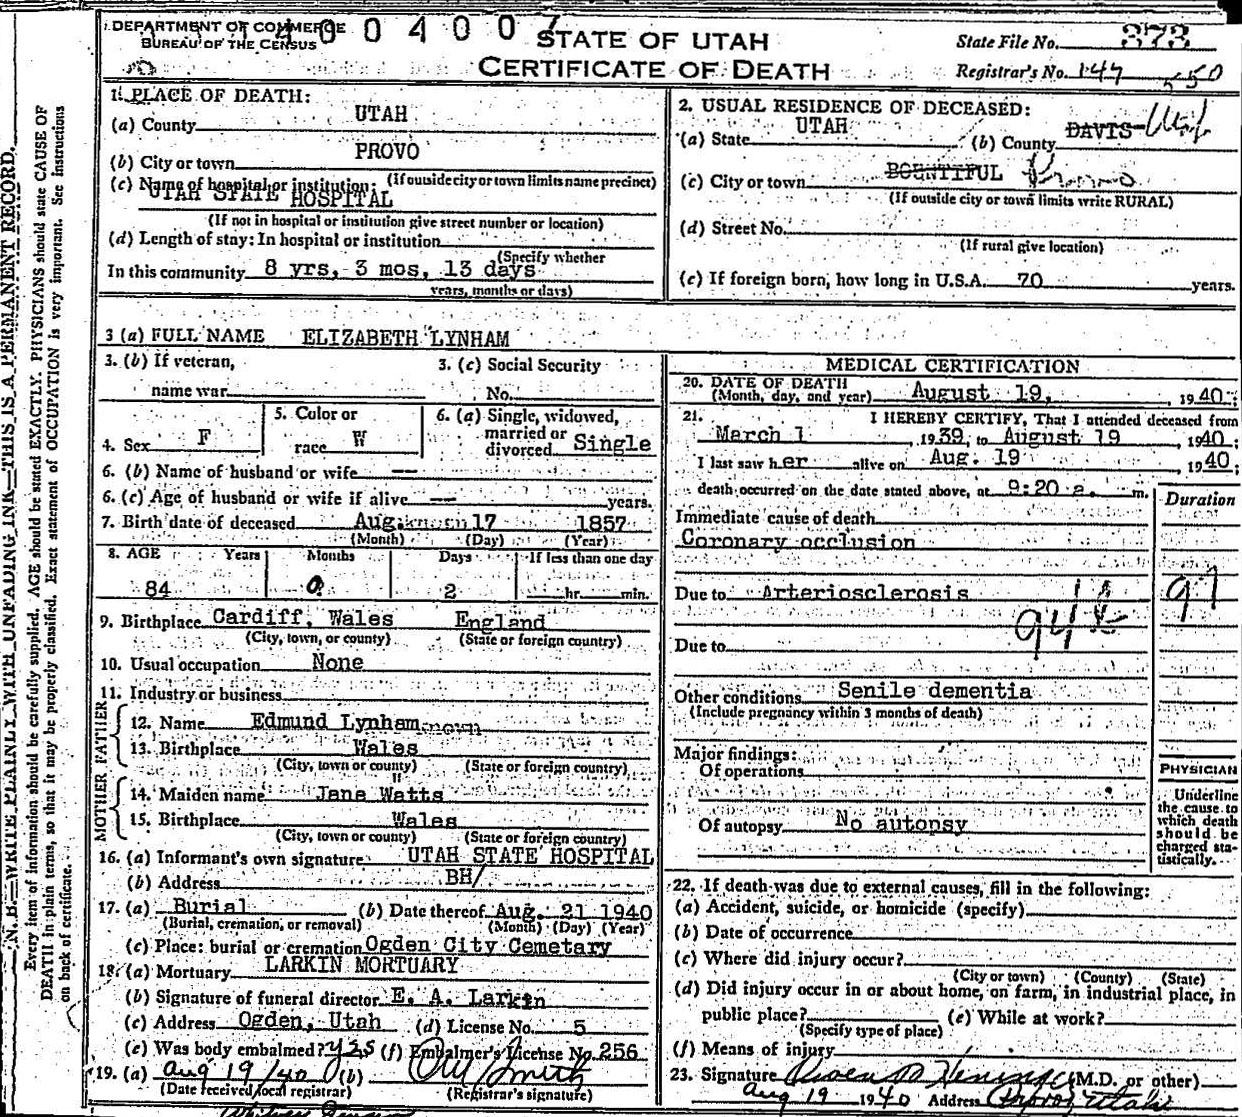 DEPARTMENT OF COMMERCE
BUREAU OF THE CENSUS
400400
STATE OF UTAH
CERTIFICATE OF DEATH
State File No. 373
Registrar's No. 147
550
N. B.—WRITE PLAINLY WITH UNFADING INK—THIS IS A PERMANENT RECORD.
Every item of information should be carefully supplied. AGE should be stated EXACTLY. PHYSICIANS should state CAUSE OF
DEATH in plain terms, so that it may be properly classified. Exact statement of OCCUPATION is very important. See instructions
on back of certificate.
1. PLACE OF DEATH:
(a) County UTAH
(b) City or town PROVO
(If outside city or town limits name precinct)
(c) Name of hospital or institution:
UTAH STATE HOSPITAL
(If not in hospital or institution give street number or location)
(d) Length of stay: In hospital or institution
(Specify whether
In this community 8 yrs, 3 mos, 13 days
years, months or days)
2. USUAL RESIDENCE OF DECEASED:
(a) State UTAH (b) County DAVIS Utah
(c) City or town BOUNTIFUL Provo
(If outside city or town limits write RURAL)
(d) Street No.
(If rural give location)
(e) If foreign born, how long in U.S.A. 70 years.
3 (a) FULL NAME ELIZABETH LYNHAM
3. (b) If veteran,
name war
3. (c) Social Security
No.
4. Sex F
5. Color or
race W
6. (a) Single, widowed,
married or
divorced Single
6. (b) Name of husband or wife --
6. (c) Age of husband or wife if alive -- years.
7. Birth date of deceased Aug. 17 1857
(Month) (Day) (Year)
8. AGE Years Months Days If less than one day
84 0 2 hr. min.
9. Birthplace Cardiff, Wales England
(City, town, or county) (State or foreign country)
10. Usual occupation None
11. Industry or business
FATHER
12. Name Edmund Lynham
13. Birthplace Wales
(City, town or county) (State or foreign country)
MOTHER
14. Maiden name Jane Watts
15. Birthplace Wales
(City, town or county) (State or foreign country)
16. (a) Informant's own signature UTAH STATE HOSPITAL
(b) Address BH/
17. (a) Burial (b) Date thereof Aug. 21 1940
(Burial, cremation, or removal) (Month) (Day) (Year)
(c) Place: burial or cremation Ogden City Cemetary
18. (a) Mortuary LARKIN MORTUARY
(b) Signature of funeral director E. A. Larkin
(c) Address Ogden, Utah (d) License No. 5
(e) Was body embalmed? yes (f) Embalmer's License No. 256
19. (a) Aug 19/40 (b) Smith
(Date received local registrar) (Registrar's signature)
MEDICAL CERTIFICATION
20. DATE OF DEATH
(Month, day, and year) August 19, 1940;
21. I HEREBY CERTIFY, That I attended deceased from
March 1, 1939, to August 19, 1940;
I last saw her alive on Aug. 19, 1940;
death occurred on the date stated above, at 9:20 a. m.
Duration
Immediate cause of death
Coronary occlusion
Due to Arteriosclerosis
97
94b
Due to
Other conditions Senile dementia
(Include pregnancy within 3 months of death)
Major findings:
Of operations
Of autopsy No autopsy
PHYSICIAN
Underline
the cause to
which death
should be
charged sta-
tistically.
22. If death was due to external causes, fill in the following:
(a) Accident, suicide, or homicide (specify)
(b) Date of occurrence
(c) Where did injury occur?
(City or town) (County) (State)
(d) Did injury occur in or about home, on farm, in industrial place, in
public place? (e) While at work?
(Specify type of place)
(f) Means of injury
23. Signature Owen P. Heninger (M.D. or other)
Aug 19 1940 Address Provo, Utah